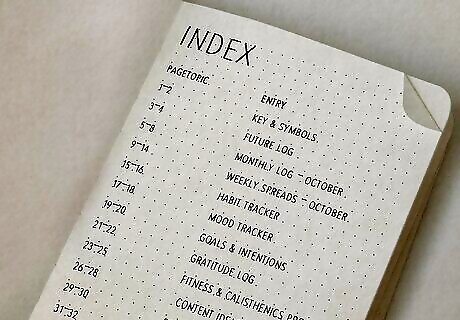 INDEX
PAGETOPIC ENTRY
1–2 KEY & SYMBOLS
3–4 FUTURE LOG
5–8 MONTHLY LOG – OCTOBER
9–14 WEEKLY SPREADS – OCTOBER
15–16 HABIT TRACKER
17–18 MOOD TRACKER
19–20 GOALS & INTENTIONS
21–22 GRATITUDE LOG
23–25 FITNESS & CALISTHENICS
26–28 CONTENT
29–30
31–32